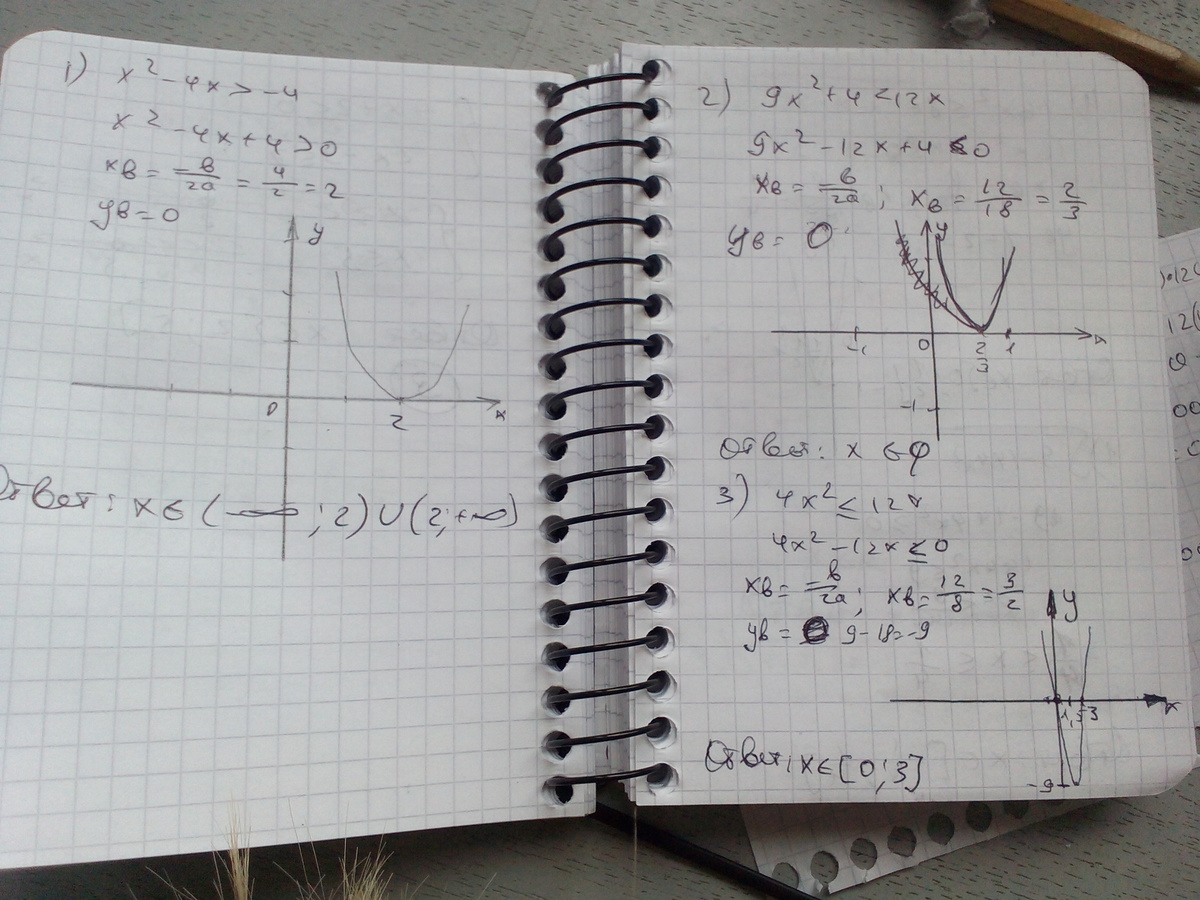 1) x² - 4x > -4
x² - 4x + 4 > 0
xв = -в/2a = 4/2 = 2
yв = 0
y
0 2 x
Ответ: x ∈ (-∞; 2) ∪ (2; +∞)
2) 9x² + 4 < 12x
9x² - 12x + 4 < 0
xв = -в/2a; xв = 12/18 = 2/3
yв = 0
y
-1 0 2/3 1 x
-1
Ответ: x ∈ φ
3) 4x² ≤ 12x
4x² - 12x ≤ 0
xв = -в/2a; xв = 12/8 = 3/2
yв = 9 - 18 = -9
y
1,5 3 x
-9
Ответ: x ∈ [0; 3]